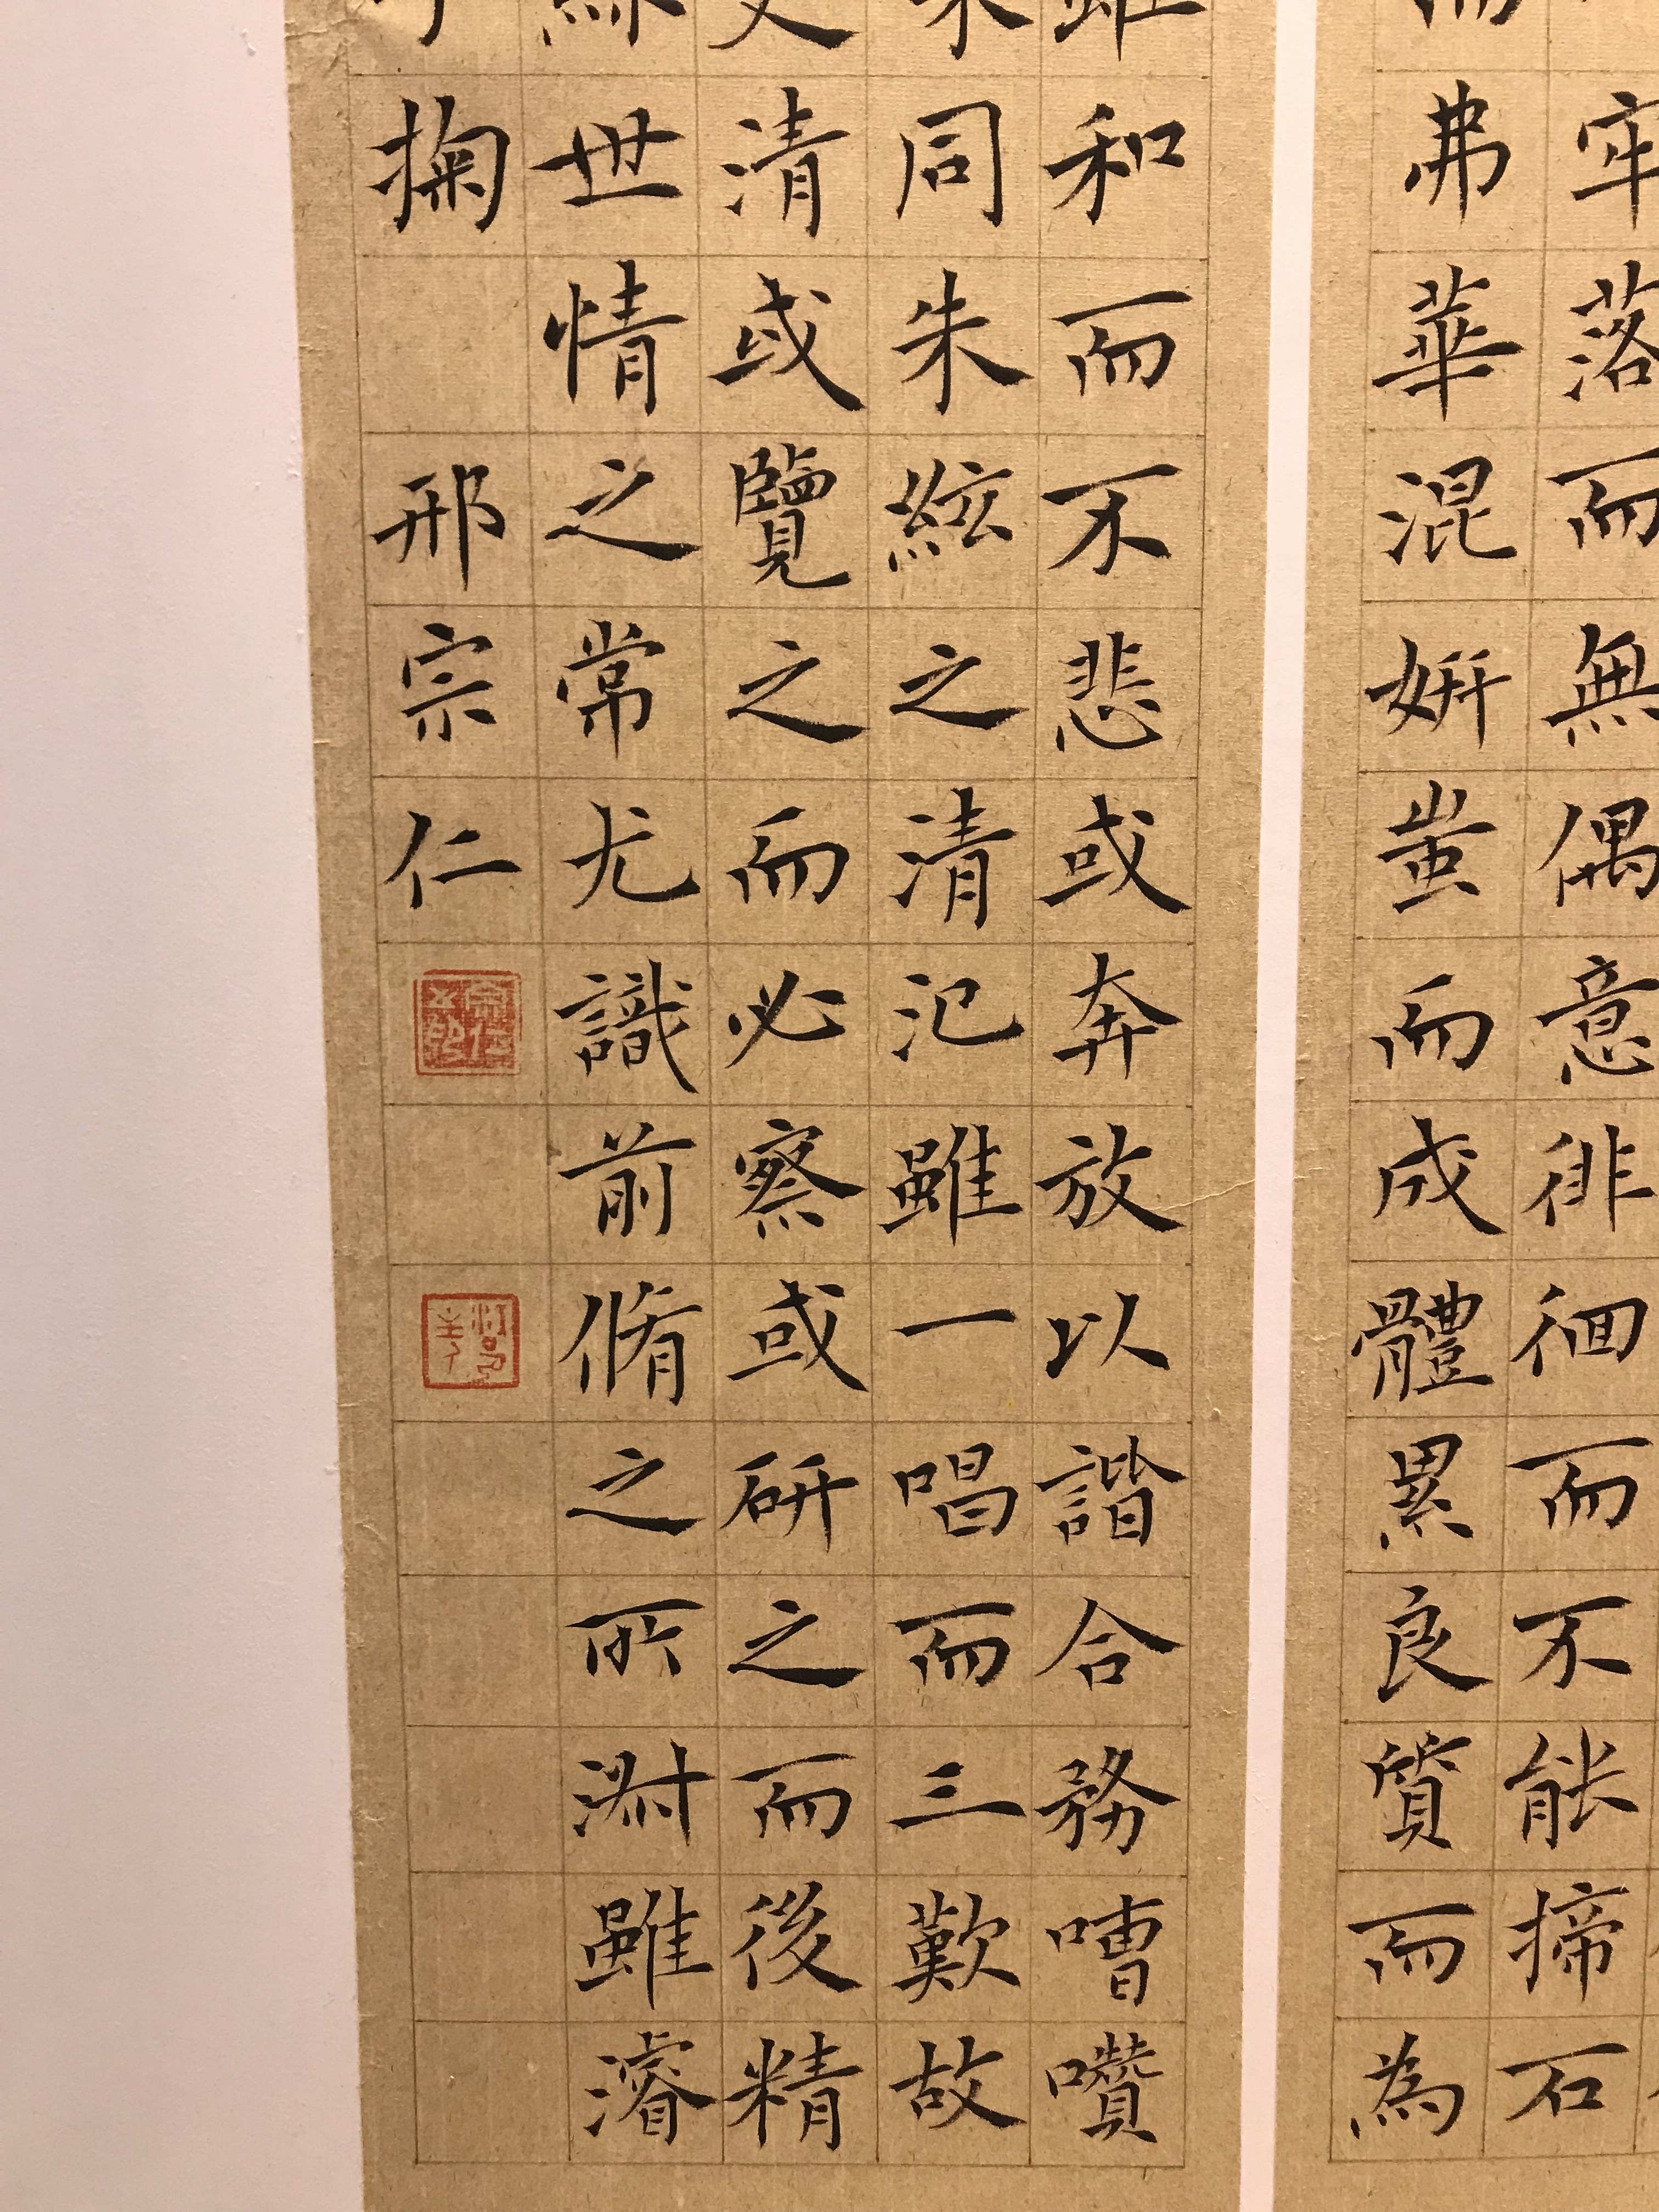 牢落而無偶意徘徊而不能揥石
而弗華混妍蚩而成體累良質而為
雖和而不悲或奔放以諧合務嘈囋
同朱絃之清氾雖一唱而三歎故
更清或覽之而必察或研之而後精
練世情之常尤識前脩之所淑雖濬
予掬 邢宗仁